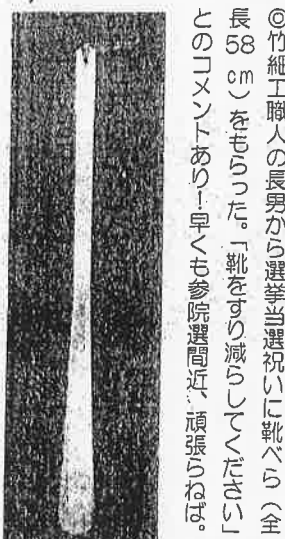 ◎竹細工職人の長男から選挙当選祝いに靴べら（全
長58cm）をもらった。「靴をすり減らしてください」
とのコメントあり！早くも参院選間近、頑張らねば。